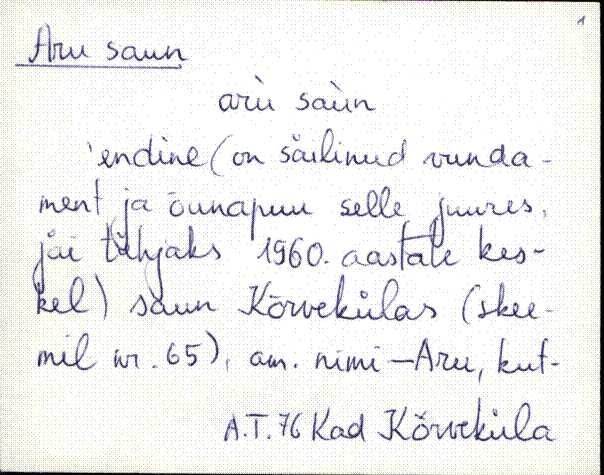 1
Aru saun
arù saùn
'endine (on säilinud vunda-
ment ja õunapuu selle juures,
jäi tühjaks 1960. aastate kes-
kel) saun Kõrvekülas (skee-
mil nr. 65), am. nimi — Aru, kut-
A.T. 76 Kad Kõrveküla